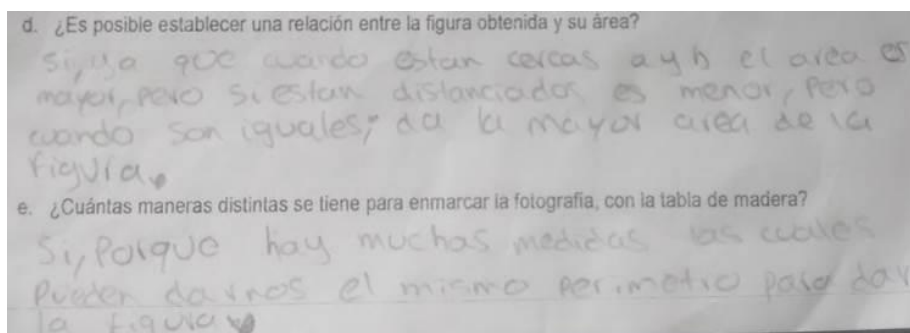 d. ¿Es posible establecer una relación entre la figura obtenida y su área?
Si, ya que cuando estan cercas a y b el area es
mayor, pero si estan distanciados es menor, pero
cuando son iguales, da la mayor area de la
figura.
e. ¿Cuántas maneras distintas se tiene para enmarcar la fotografía, con la tabla de madera?
Si, Porque hay muchas medidas las cuales
Pueden darnos el mismo perimetro para dar
la figura